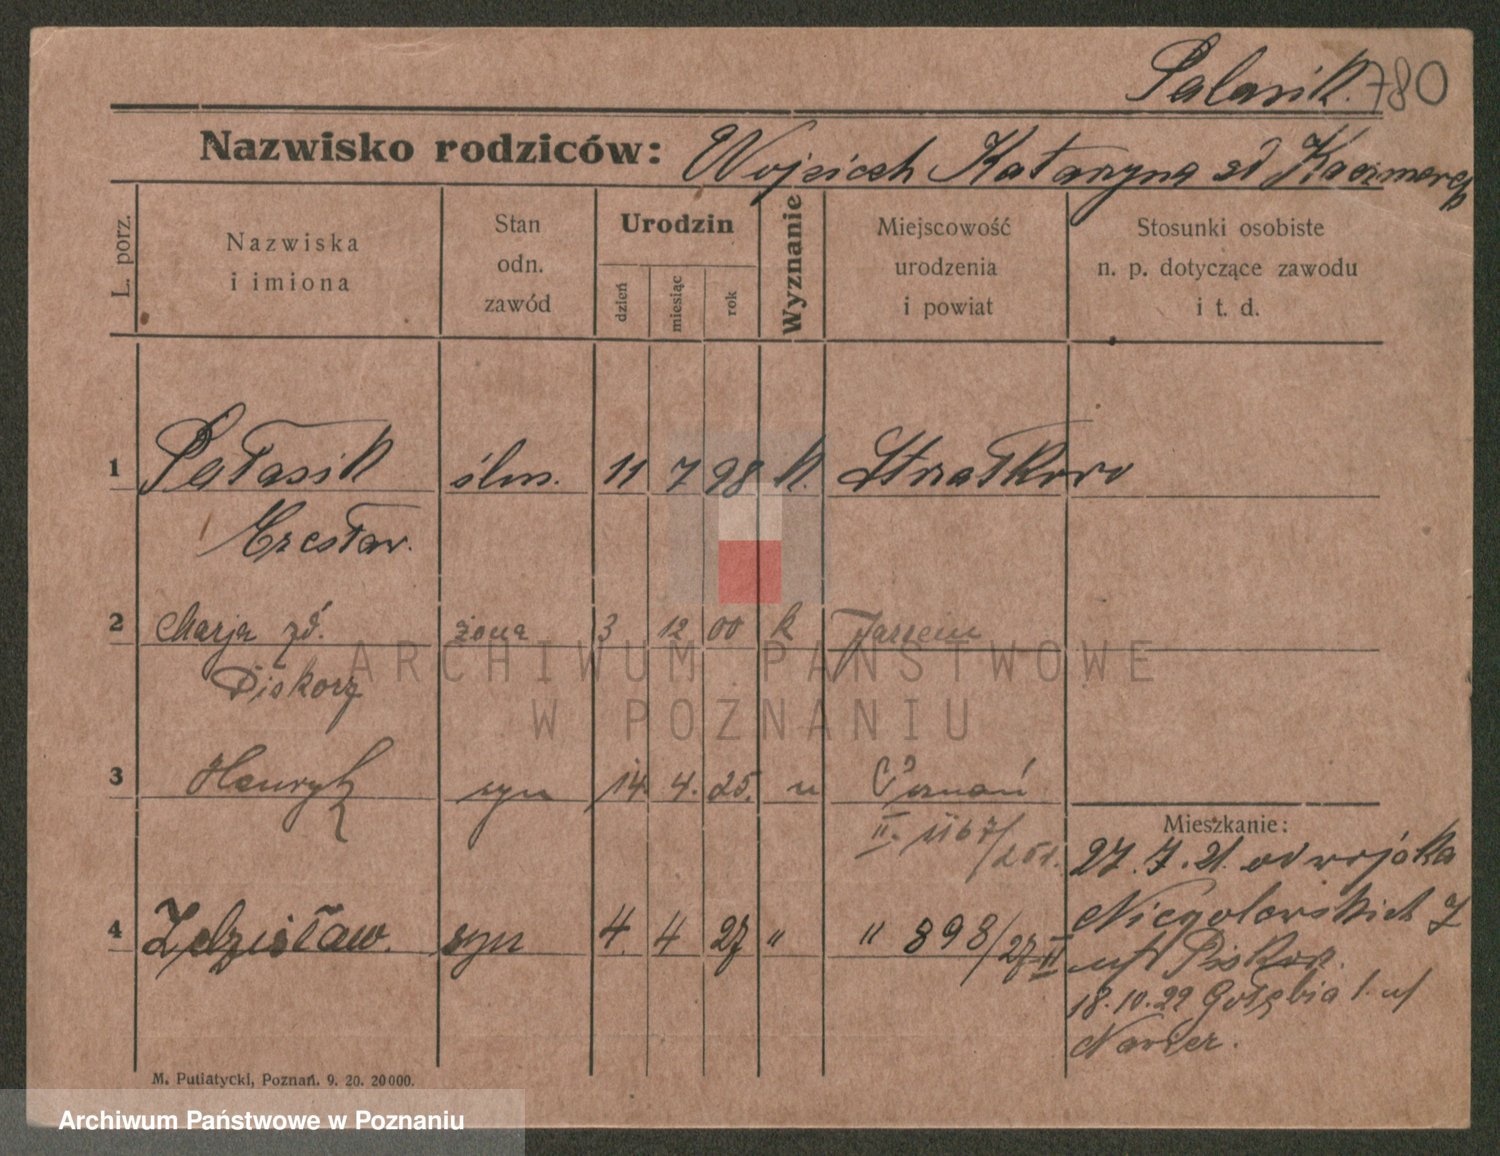 Palasik. 780
Nazwisko rodziców: Wojciech Katarzyna zd Kaczmarek
L. porz.
Nazwiska
i imiona
Stan
odn.
zawód
Urodzin
dzień
miesiąc
rok
Wyznanie
Miejscowość
urodzenia
i powiat
Stosunki osobiste
n. p. dotyczące zawodu
i t. d.
1 Pałasik ślus. 11 7 98 k. Strzałkowo
Czesław.
2 Marja zd. żona 3 12 00 k
Piskorz
3 Henryk syn 14. 4. 25. " Poznań
II. 1167/25.
4 Zdzisław. syn 4. 4 27 " " 898/27 II
Mieszkanie:
27. 7. 21. od wojska
Niegolewskich 7
u/ Piskorz.
18.10.22 Gołębia 1. u/
M. Putiatycki, Poznań. 9. 20. 20000.
ARCHIWUM PAŃSTWOWE
W POZNANIU
Archiwum Państwowe w Poznaniu